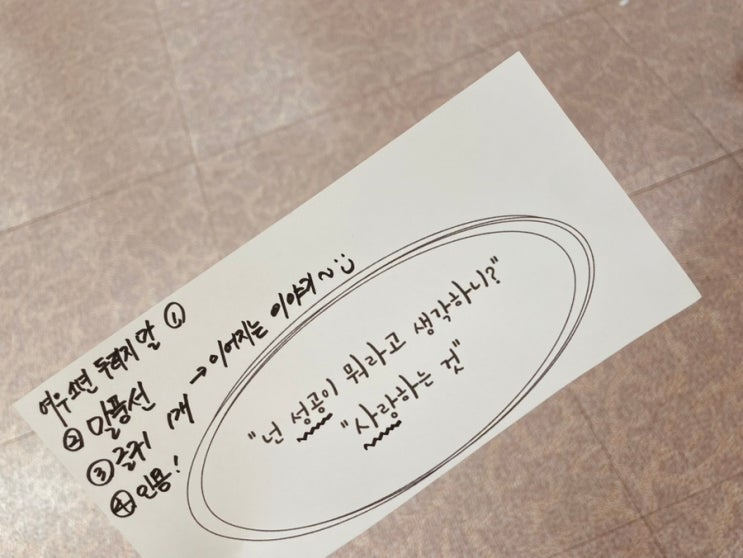 여우 소년 두더지 말 ①
② 말풍선
③ 글귀 1개 → 이어지는 이야기~
④ 인용!
"넌 성공이 뭐라고 생각하니?"
"사랑하는 것"